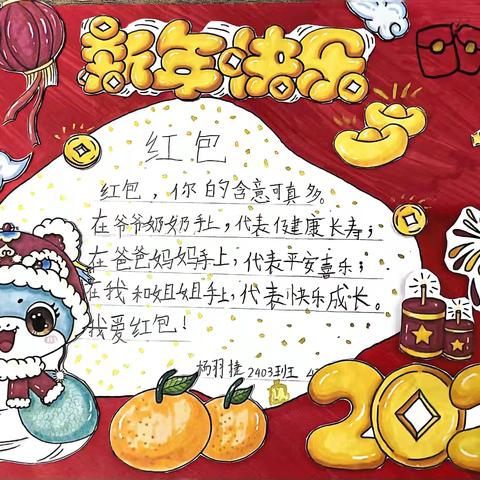 新年快乐
红包
红包，你的含意可真多。
在爷爷奶奶手上，代表健康长寿；
在爸爸妈妈手上，代表平安喜乐；
在我和姐姐手上，代表快乐成长。
我爱红包！
杨羽捷 2403班
202